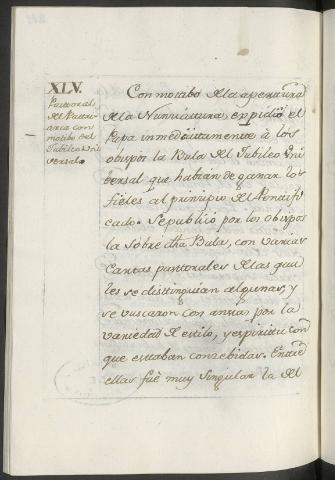 XLV.
Pastoral
del Patri-
arca con
motibo del
Jubileo Uni-
versal.
Con motibo de la apertura
de la Nunciatura, expidió el
Papa inmediatamente á los
obispos la Bula del Jubileo Uni
bersal que habian de ganar los
fieles al principio del Pontifi
cado. Se publicó por los obispos
la sobre dha Bula, con varias
cartas pastorales de las qua
les se distinguian algunas, y
se buscaron con ansia por la
variedad de estilo, y espiritu con
que estaban concebidas. Entre
ellas fué muy singular la del